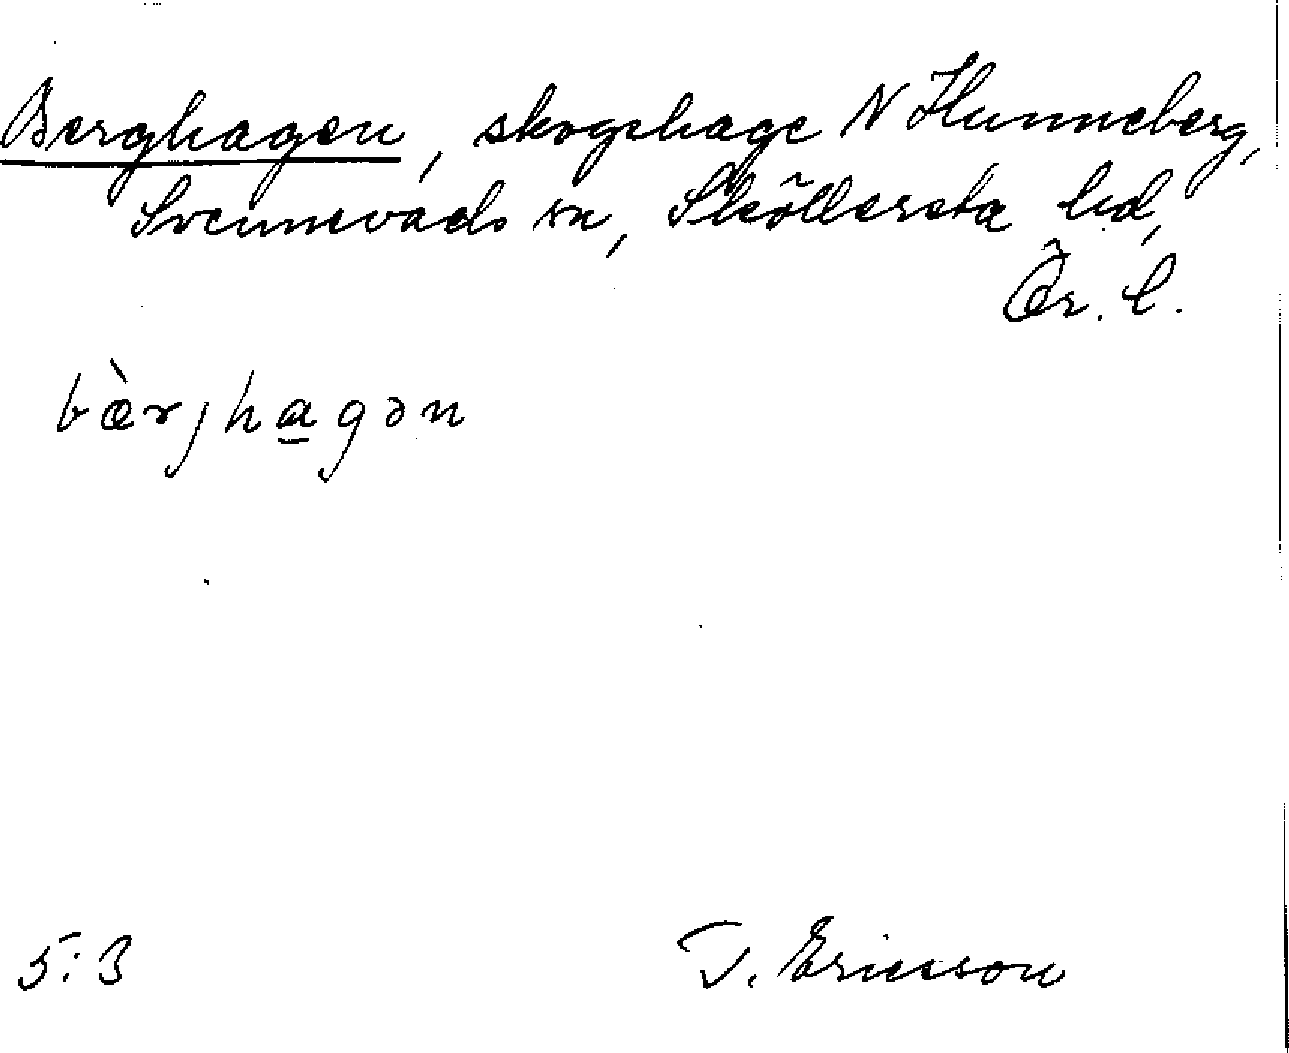 Berghagen, skogshage N Hunneberg,
Svennevads sn, Sköllersta hd,
Ör. l.
bæ̀rjha̲gən
5:3
T. Ericsson